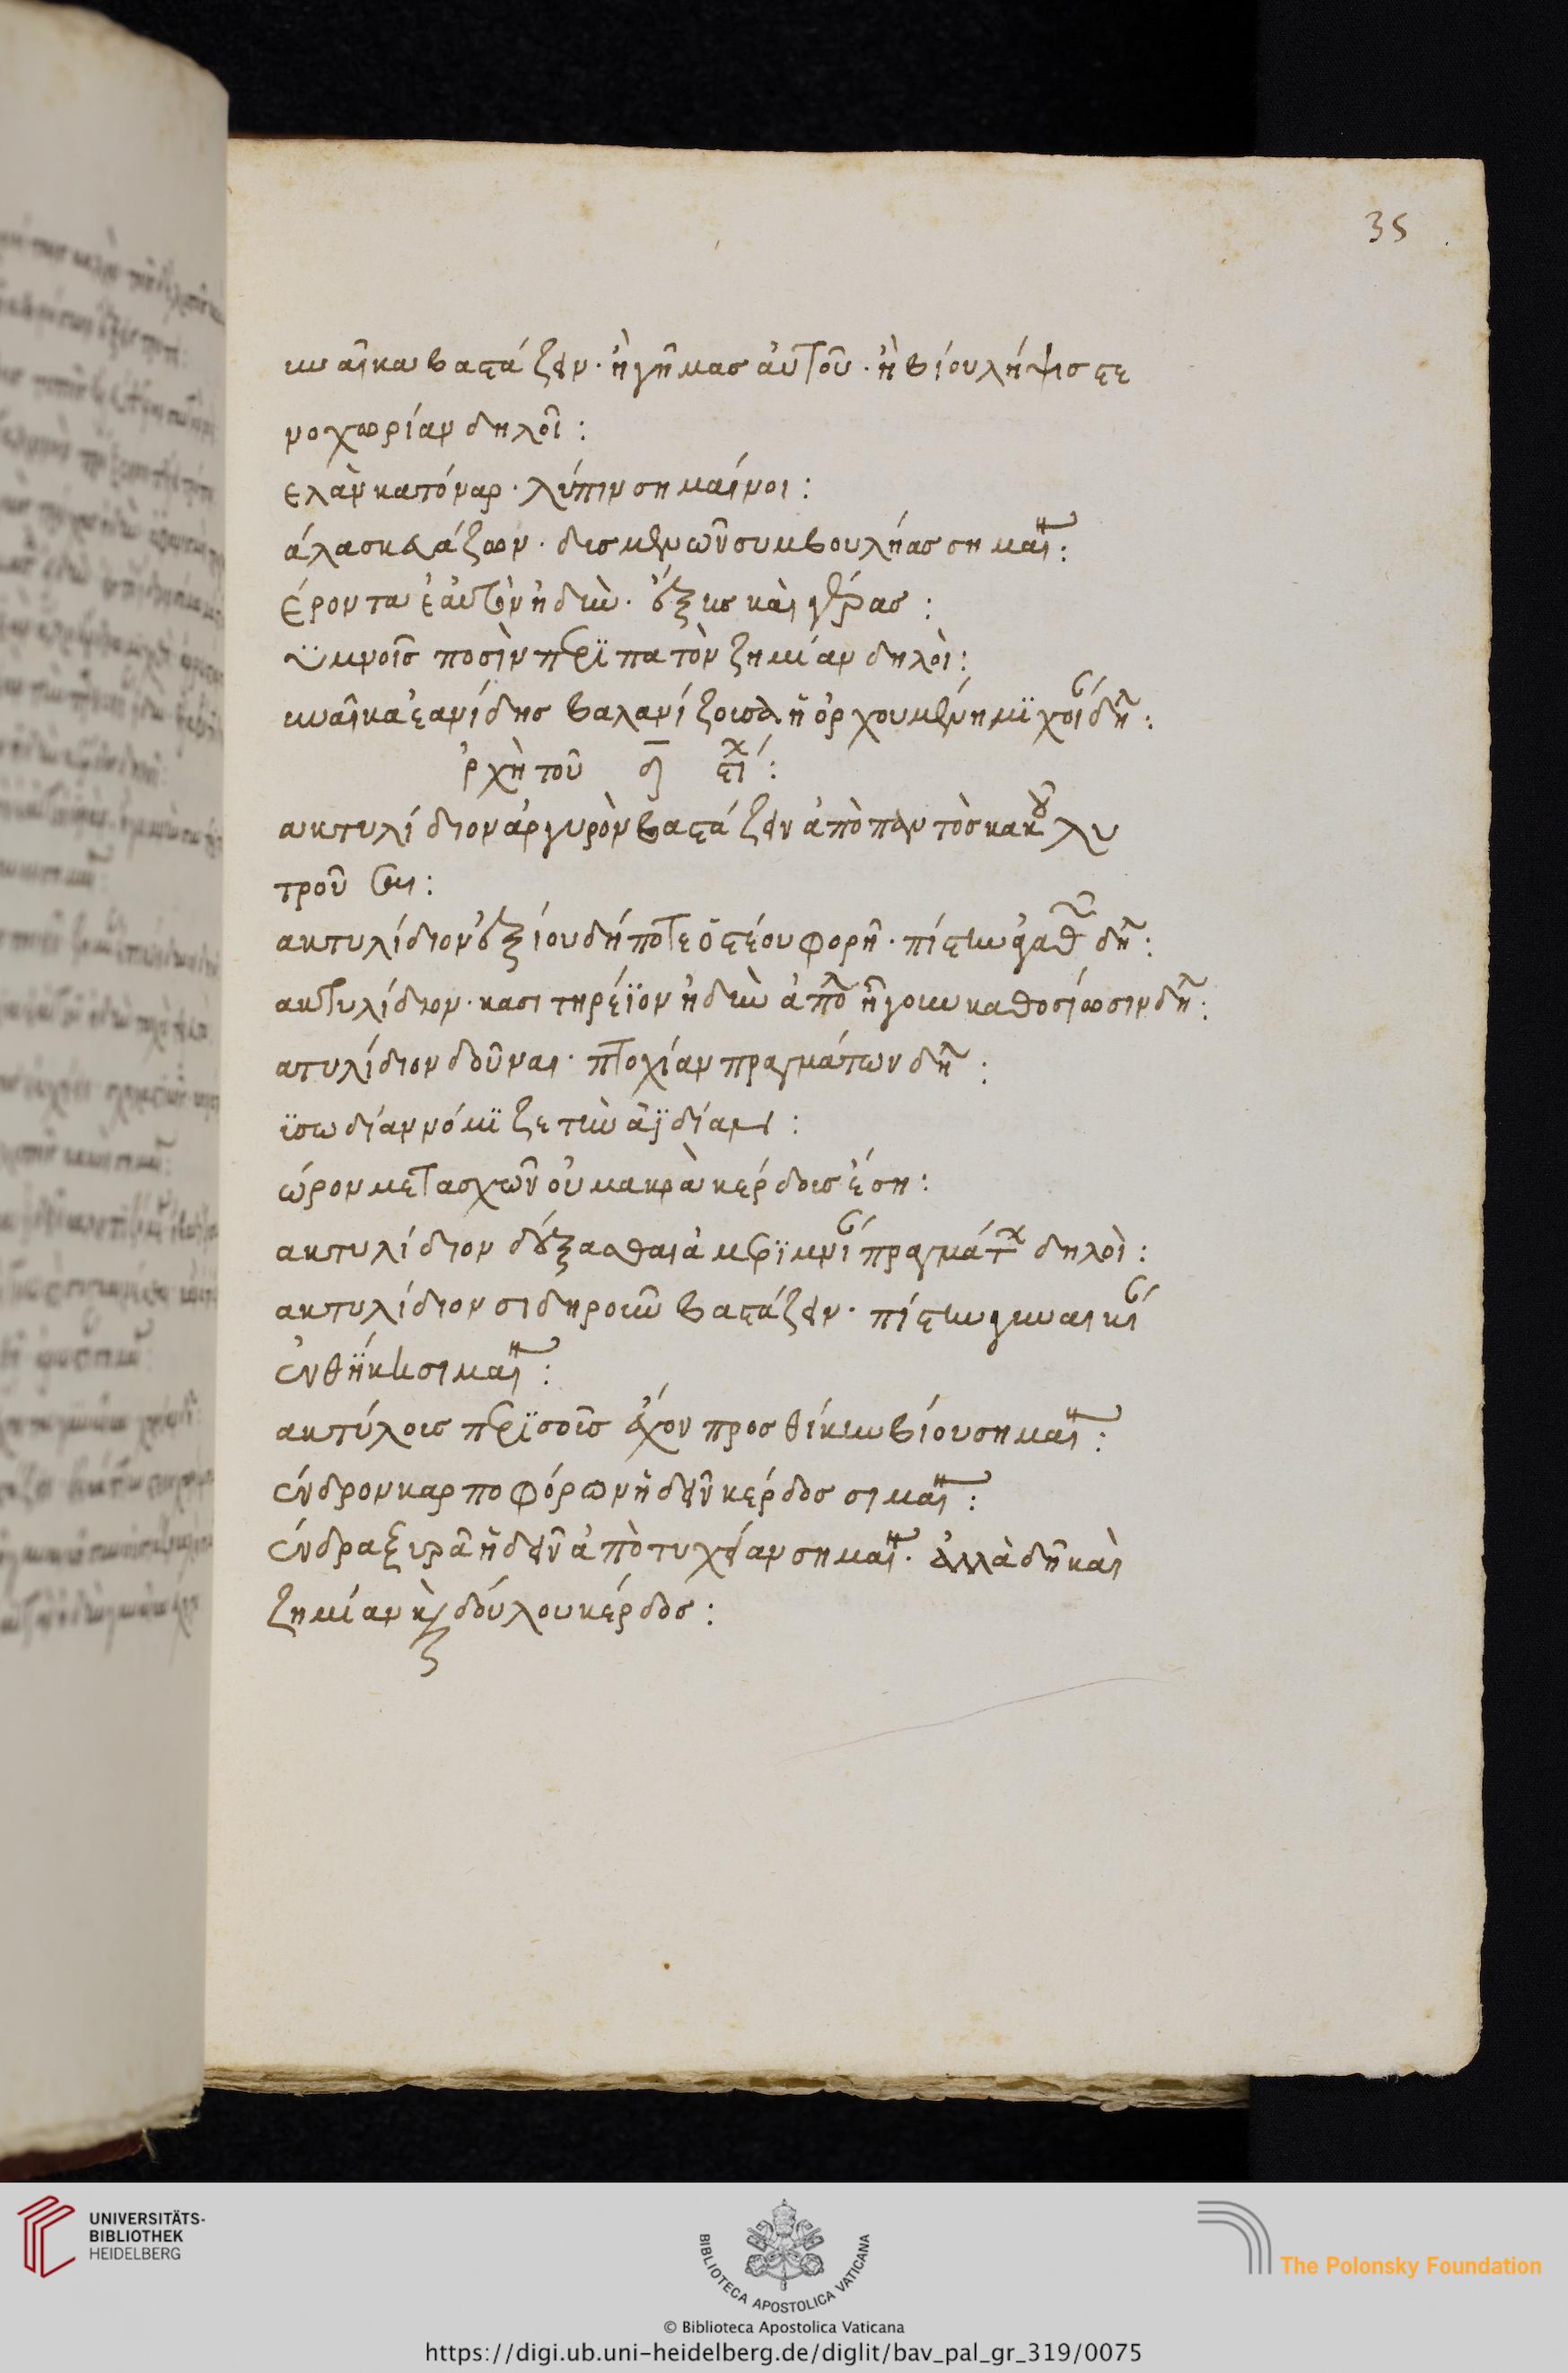 35
υναῖκα βαστάζειν· ἢ γῆμας αὐτοῦ· ἢ βίου λήψις στε
νοχωρίαν δηλοῖ:
ελὰν κατόναρ· λύπιν σημαίνοι:
άλασκ άζων· δισμενων συμβουλήας σημαί:
έροντα ἑαυτὸν ἠδεῖν· δόξης καὶ γέρας:
ϋμνοῖς ποσὶν περϊπατὸν ζημίαν δηλὸι:
υναῖκα βαλανίζοισα ἢ ὀρχουμένη μϊχοί δη:
ρχὴ τοῦ δ στι:
ακτυλίδιον ἀργυρὸν βαστάζειν ἀπὸ παντὸς κακοῦ λυ
τροῦ σαι:
ακτυλίδιον δξ ίου δήποτε ὀστέου φορῆ· πίστιν ἀγαθ δη:
ακτυλίδιον· κασιτηρέϊον ἠδεῖν ἀπὸ ἡγοιν καθοσίωσιν δη:
ατυλίδιον δοῦναι· πτοχίαν πραγμάτων δη:
ϊσωδίαν νόμϊζε τὴν ἀηδίαν:
ώρον μετασχῶν οὐ μακρὰν κέρδοις έση:
ακτυλίδιον δόξασθαι ἀμερϊμνί πραγμάτ δηλὸι:
ακτυλίδιον σιδηροιῶ βαστάζειν· πίστιν γυναικί
ενθήκην σιμαί:
ακτύλοις περϊσοῖς ἔχον προσθίκιν βίου σημαί:
ένδρον καρποφόρων ἢ δεῖν κέρδος σιμαί:
ένδρα ξυρᾶ ἢ δεῖν ἀπὸτυχείαν σημαί· ἀλλὰ δη καὶ
ζημίαν κὶ δούλου κέρδος:
UNIVERSITÄTS-
BIBLIOTHEK
HEIDELBERG
BIBLIOTECA APOSTOLICA VATICANA
The Polonsky Foundation
© Biblioteca Apostolica Vaticana
https://digi.ub.uni-heidelberg.de/diglit/bav_pal_gr_319/0075